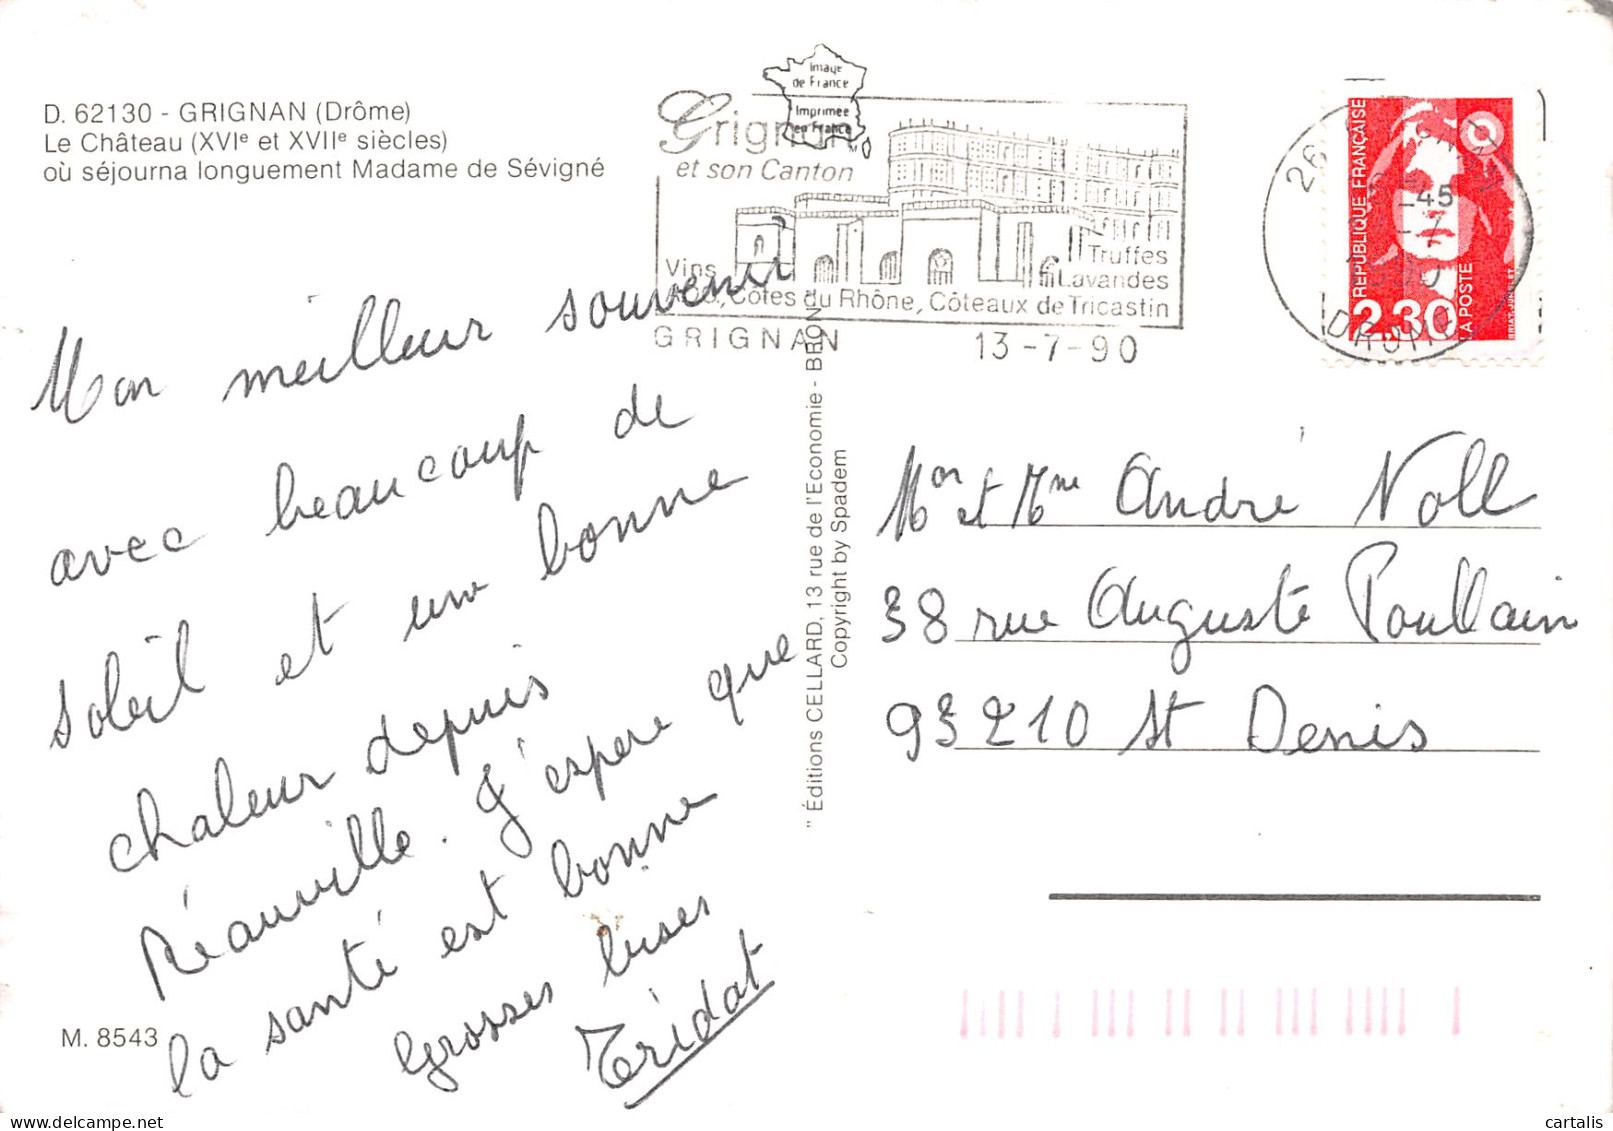 D. 62130 - GRIGNAN (Drôme)
Le Château (XVIe et XVIIe siècles)
où séjourna longuement Madame de Sévigné
Image
de France
Imprimée
en France
Grignan
et son Canton
Vins
Truffes
Lavandes
Côtes du Rhône, Côteaux de Tricastin
GRIGNAN
13-7-90
26
45
DROME
REPUBLIQUE FRANÇAISE
2,30
LA POSTE
Mon meilleur souvenir
avec beaucoup de
soleil et une bonne
chaleur depuis
Réauville. J'espère que
la santé est bonne
Grosses bises
M. 8543
" Éditions CELLARD, 13 rue de l'Economie - BRON
Copyright by Spadem
Mon et Mme André Noll
38 rue Auguste Poullain
93210 St Denis
cartalis
www.delcampe.net